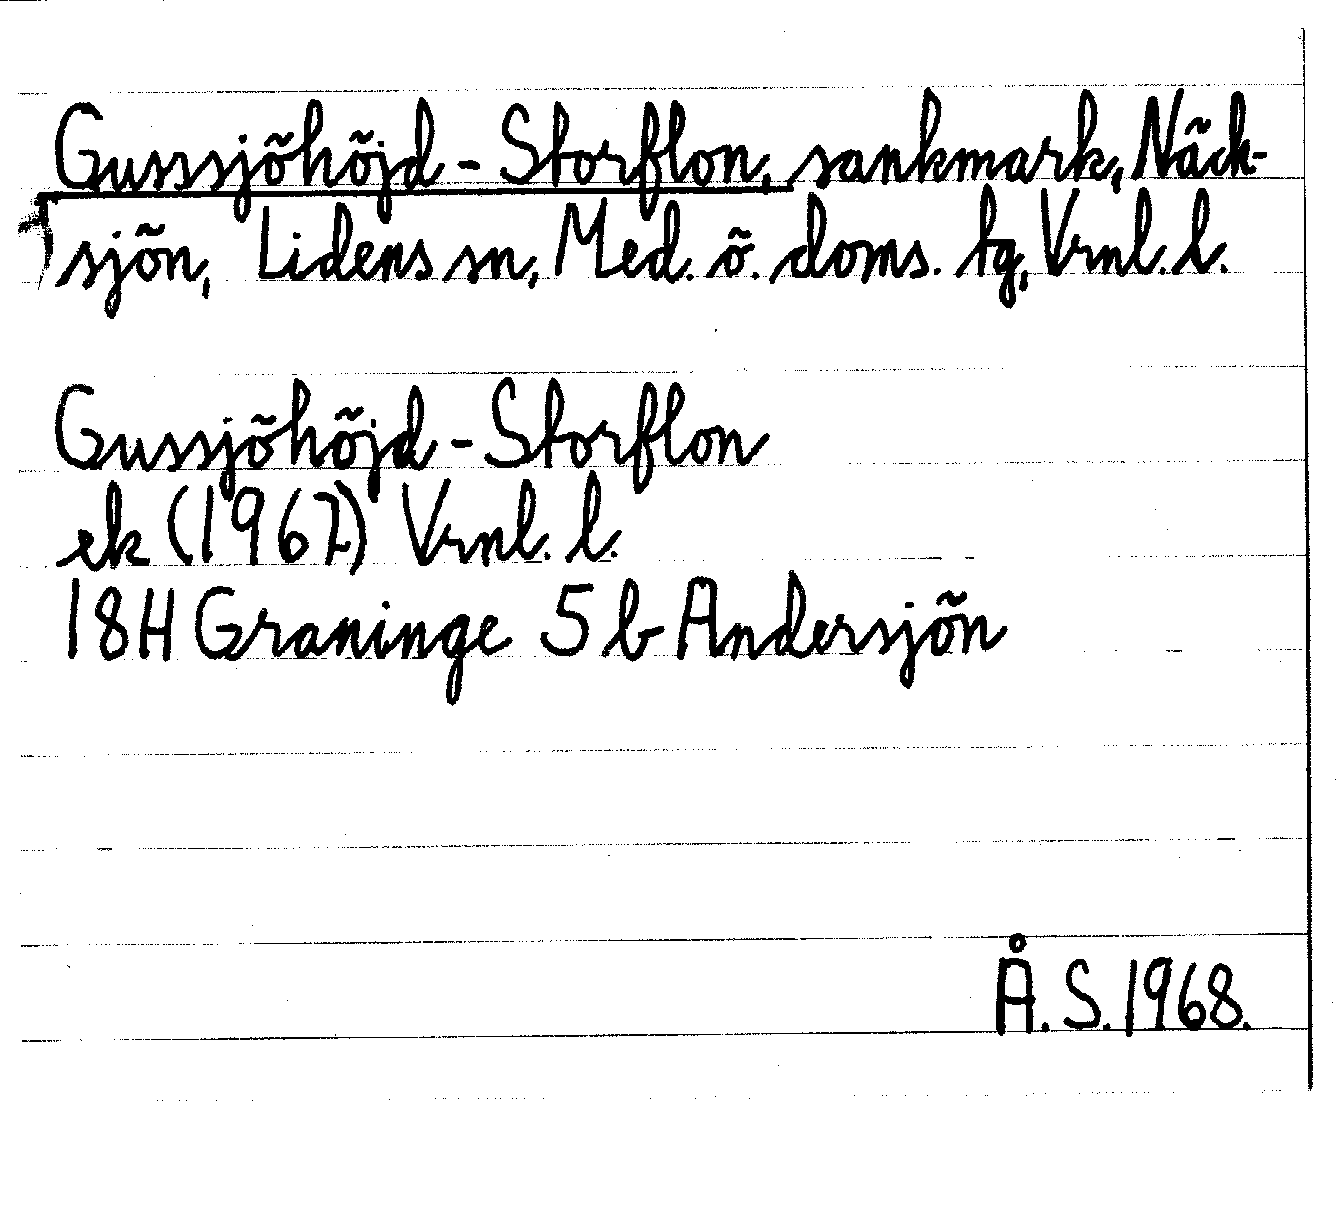 Gusssjöhöjd - Storflon, sankmark, Näck-
sjön, Lidens sn, Med. ö. doms. tg, Vrnl. l.
Gussjöhöjd - Storflon
ek (1967) Vrnl. l.
18H Graninge 5 b Andersjön
Å. S. 1968.